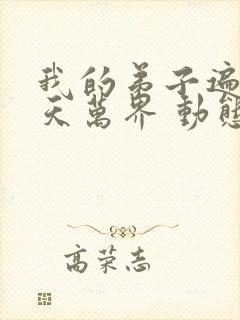 我的弟子遍
天萬界 動態
高荣志